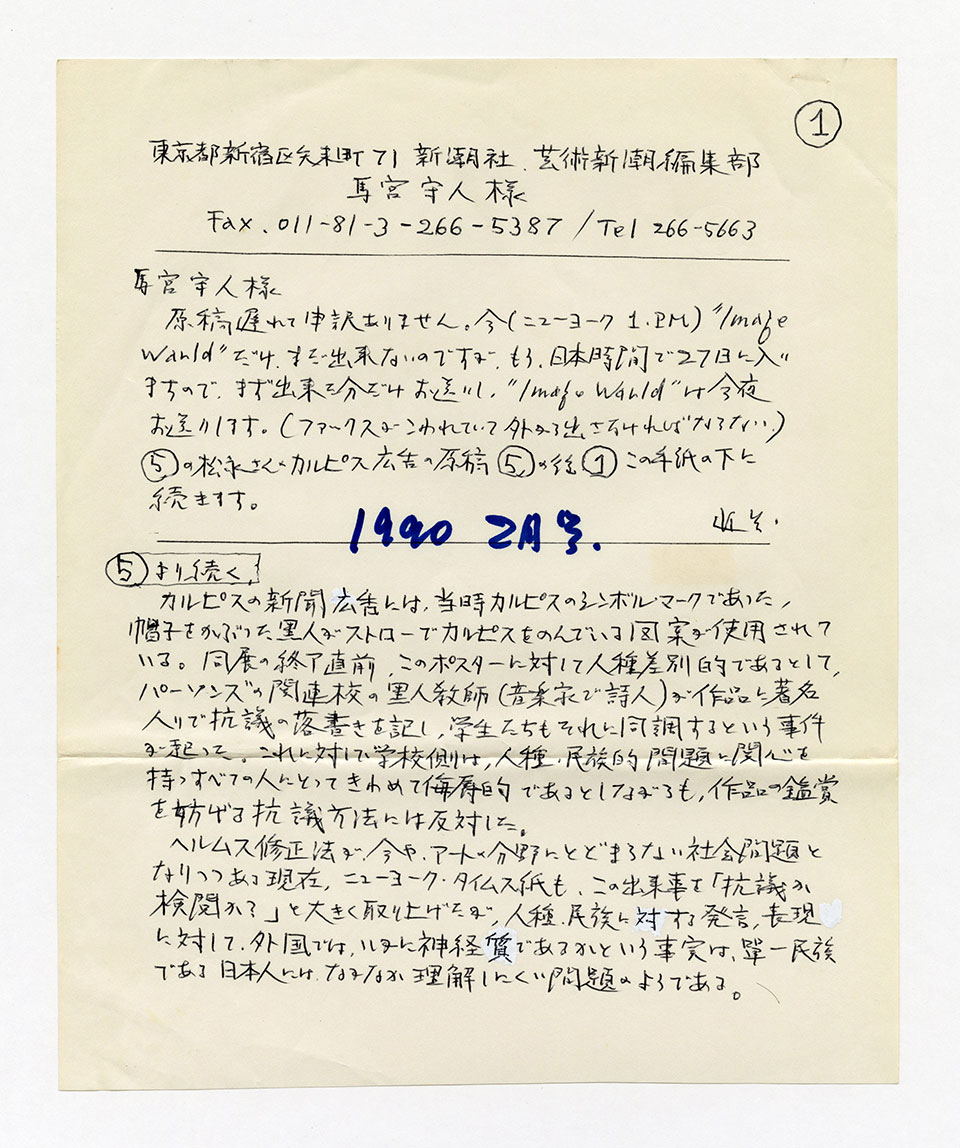 ①
東京都新宿区矢来町71 新潮社. 芸術新潮編集部
馬宮守人様
Fax. 011-81-3-266-5387 / Tel 266-5663
馬宮守人様
原稿遅れて申訳ありません。今(ニューヨーク 1.PM) "Image
World"だけ、まだ出来ないのですが、もう、日本時間で27日に入り
ますので、まず出来た分だけお送りし、"Image World"は今夜
お送りします。(ファックスがこわれていて外から出さなければならない。)
⑤の松永さんのカルピス広告の原稿⑤の後①この手紙の下に
続きます。
1990 2月号.
⑤より続く,
カルピスの新聞広告には、当時カルピスのシンボル・マークであった、
帽子をかぶった黒人がストローでカルピスをのんでいる図案が使用されて
いる。同展の終了直前、このポスターに対して人種差別的であるとして、
パーソンズの関連校の黒人教師(音楽家で詩人)が作品に署名
入りで抗議の落書きを記し、学生たちもそれに同調するという事件
が起った。これに対して学校側は、人種・民族的問題に関心を
持つすべての人にとってきわめて侮辱的であるとしながらも、作品の鑑賞
を妨げる抗議方法には反対した。
ヘルムス修正法が、今や、アートの分野にとどまらない社会問題と
なりつつある現在、ニューヨーク・タイムス紙も、この出来事を「抗議か
検閲か?」と大きく取り上げたが、人種・民族に対する発言、表現
に対して、外国では、いかに神経質であるかという事実は、単一民族
である日本人には、なかなか理解しにくい問題のようである。